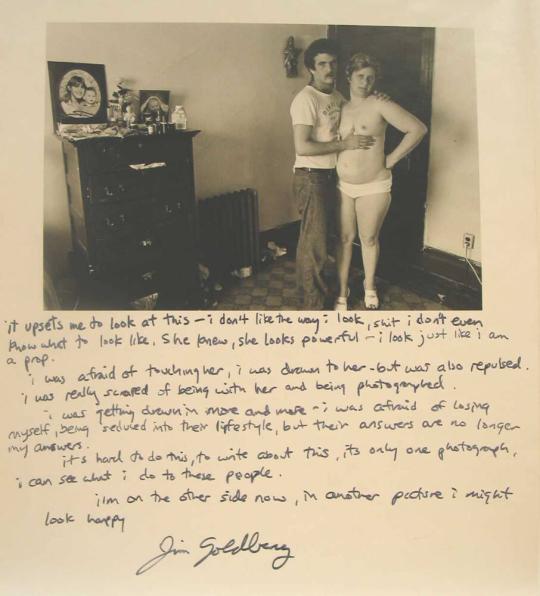 it upsets me to look at this - i don't like the way i look, shit i don't even
know what to look like. She knew, she looks powerful - i look just like i am
a prop.
i was afraid of touching her, i was drawn to her - but was also repulsed.
i was really scared of being with her and being photographed.
i was getting drawn in more and more - i was afraid of losing
myself, being seduced into their lifestyle, but their answers are no longer
my answers.
it's hard to do this, to write about this, its only one photograph,
i can see what i do to these people.
i'm on the other side now, in another picture i might
look happy
Jim Goldberg